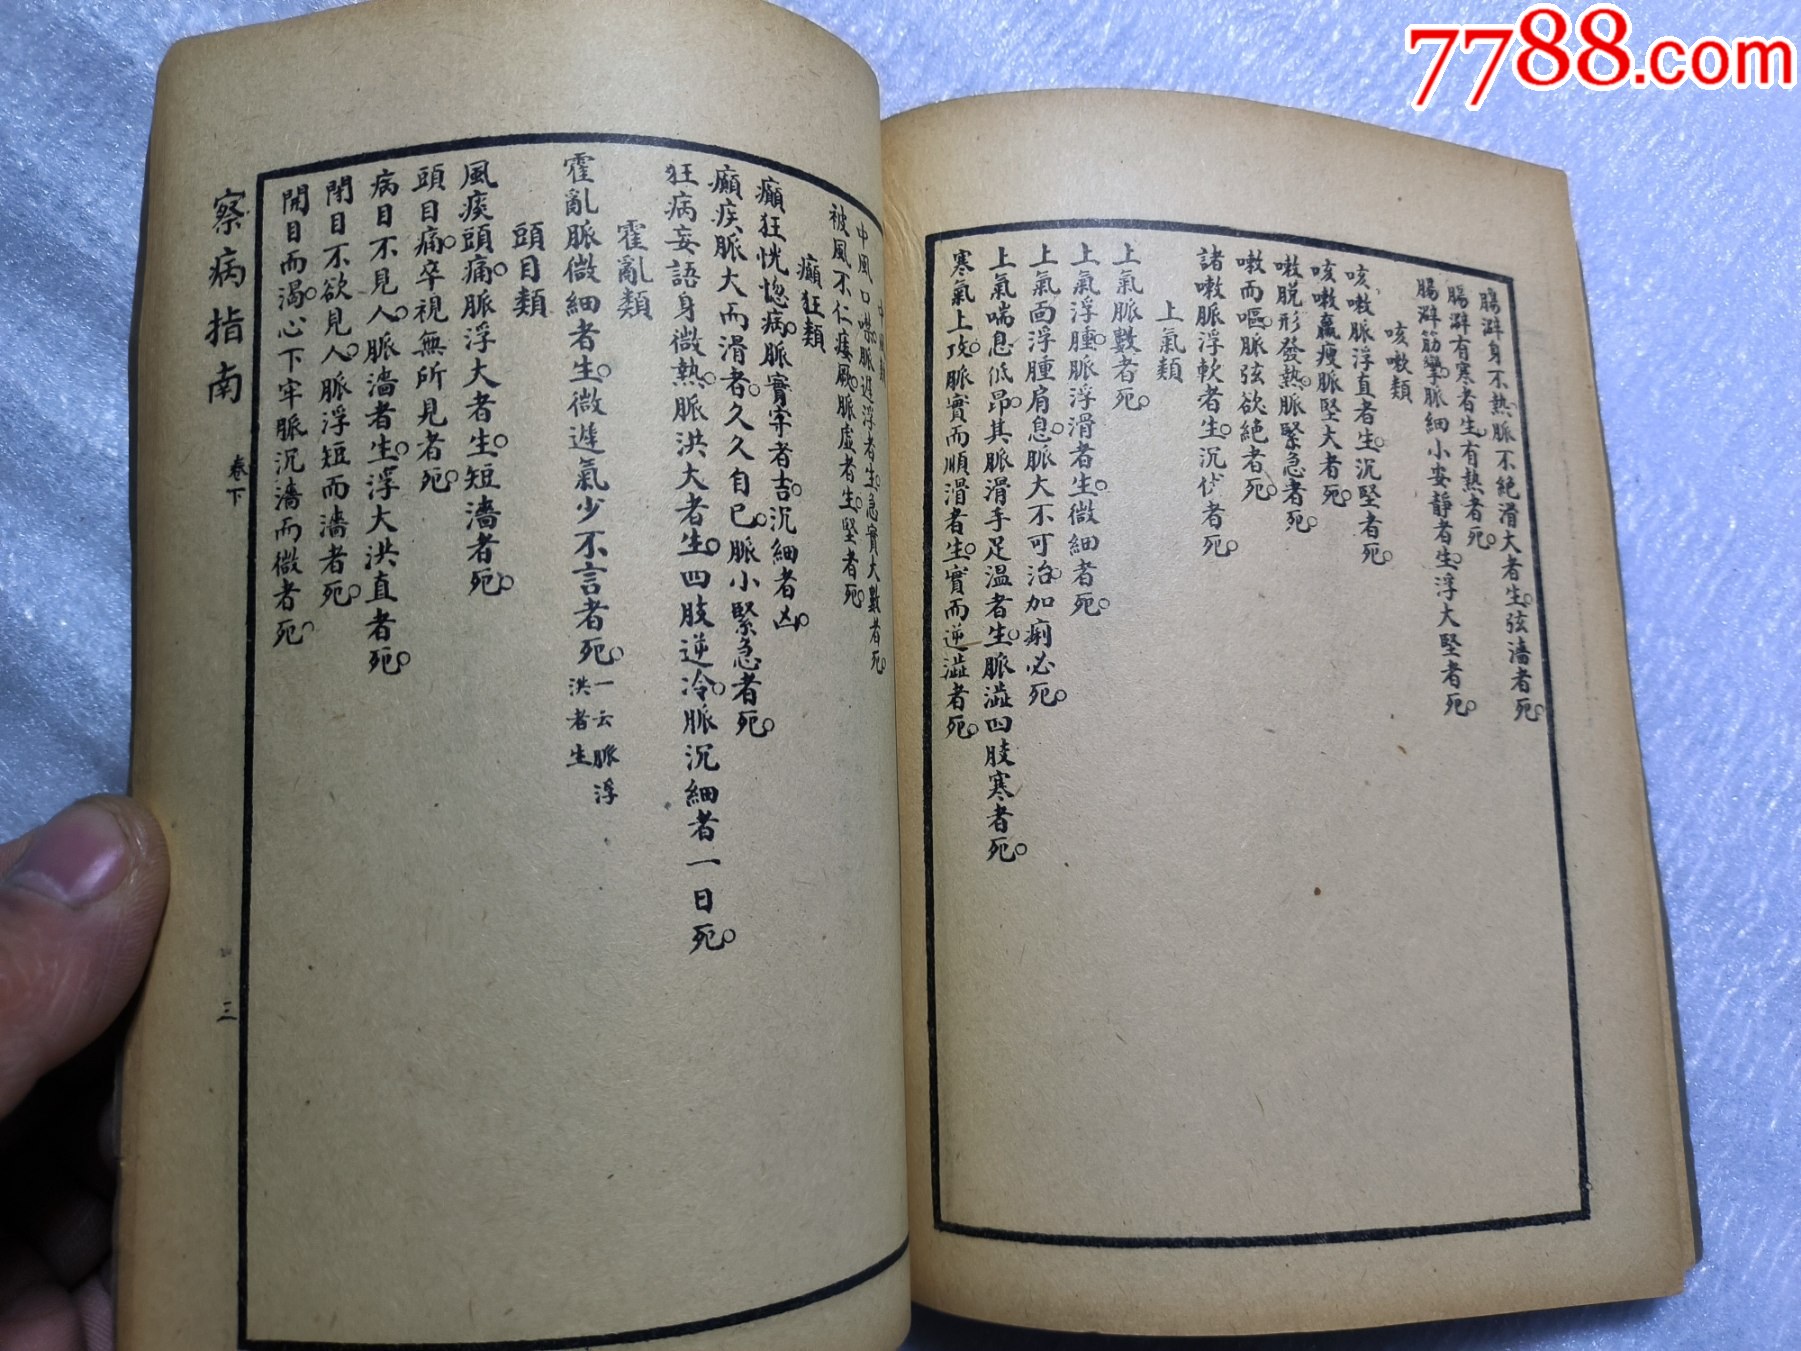 7788.com
腸澼身不熱。脈不絕滑大者生。弦濇者死。
腸澼有寒者生。有熱者死。
腸澼筋攣。脈細小安靜者生。浮大堅者死。
咳嗽類
咳嗽脈浮直者生。沉堅者死。
咳嗽羸瘦脈堅大者死。
嗽脫形發熱。脈緊急者死。
嗽而嘔。脈弦欲絕者死。
諸嗽脈浮軟者生。沉伏者死。
上氣類
上氣脈數者死。
上氣浮腫。脈浮滑者生。微細者死。
上氣面浮腫肩息。脈大不可治。加痢必死。
上氣喘息低昂。其脈滑手足溫者生。脈澁四肢寒者死。
寒氣上攻。脈實而順滑者生。實而逆澁者死。
中風口噤。脈遲浮者生。急實大數者死
被風不仁痿厥。脈虛者生。堅者死。
癲狂類
癲狂恍惚病。脈實牢者吉。沉細者凶。
癲疾脈大而滑者。久久自已。脈小緊急者死。
狂病妄語身微熱。脈洪大者生。四肢逆冷。脈沉細者一日死。
霍亂類
霍亂脈微細者生。微遲氣少不言者死。一云脈浮
洪者生
頭目類
風痰頭痛。脈浮大者生。短濇者死。
頭目痛。卒視無所見者死。
病目不見人。脈濇者生。浮大洪直者死。
閉目不欲見人。脈浮短而濇者死。
開目而渴。心下牢脈沉濇而微者死。
察病指南
卷下
三